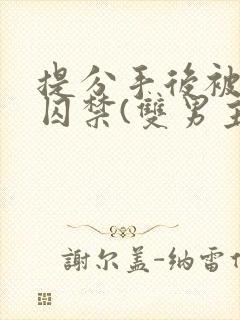 提分手後被
囚禁(雙男主
謝尔盖-纳雷